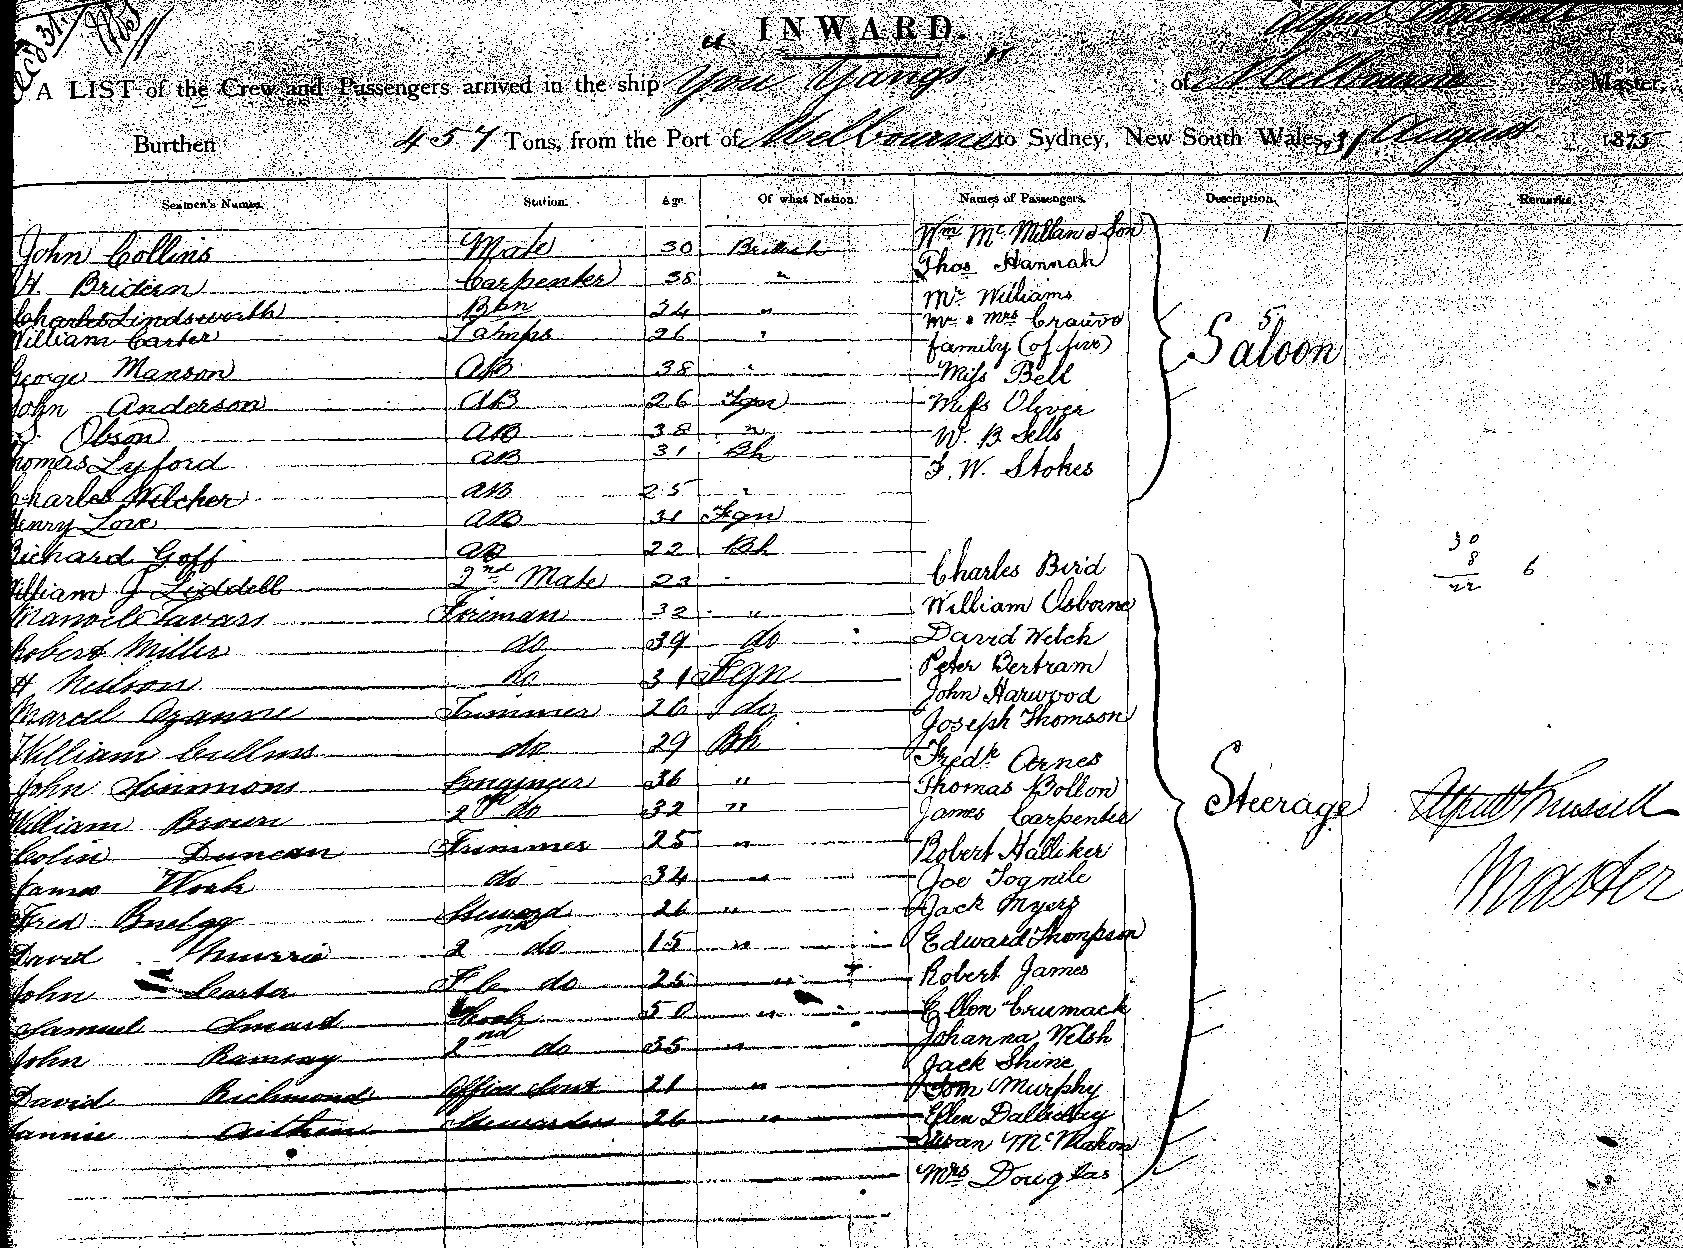 INWARD.
A LIST of the Crew and Passengers arrived in the ship "You Yangs" of Melbourne Master,
Burthen 457 Tons, from the Port of Melbourne to Sydney, New South Wales, 31 August 1875
Seamen's Names. Station. Age. Of what Nation. Names of Passengers. Description. Remarks.
John Collins Mate 30 British Wm McMillan & Son
H. Bridern Carpenter 38 " Thos Hannah
Charles Lindsworth Bsn 24 " Mr. Williams
William Carter Lamps 26 " Mr & Mrs
family (of five)
George Manson AB 38 " Miss Bell
John Anderson AB 26 Fgn Miss Oliver
Olson AB 38 " W. B. Sells
Thomas Lyford AB 31 Bh F. W. Stokes
Saloon
Charles Welcher AB 25 "
Henry Love AB 31 Fgn
Richard Goff AB 22 Bh Charles Bird
William J Liddell 2nd Mate 22 William Osborne
Manoel Tavars Fireman 32 " David Welch
Robert Miller do 39 do Peter Bertram
H Neilson do 31 Fgn John Harwood
Marcel Ozanne Trimmer 26 do Joseph Thomson
William do 29 Bh Fredk Arnes
John Simmons Engineer 36 " Thomas Bolton
William Brown 2nd do 32 " James Carpenter
Steerage
Alfred Russell
Master
Colin Duncan Trimmer 25 " Robert Halliker
James Work do 34 " Joe Tognile
Fred Steward 26 " Jack Myers
David Murrie 2nd do 15 " Edward Thompson
John Carter F C do 25 " Robert James
Samuel Smart Cook 50 " Ellen Crumack
John Ramsay 2nd do 35 " Johanna Welsh
Jack Shine
David Richmond Officers Servt 21 " Tom Murphy
Fannie Aitken Stewardess 26 " Ellen Dallechy
Susan McMahon
Mrs Douglas